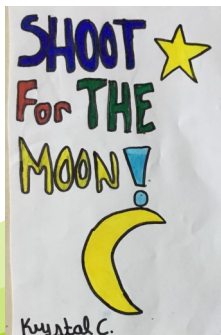 SHOOT
For THE
MOON!
Krystal C.